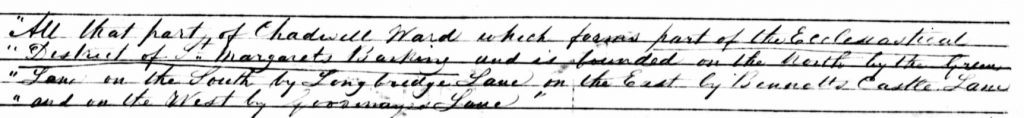 "All that part of Chadwell Ward which forms part of the Ecclesiastical
"District of St Margarets Barking and is bounded on the North by the Green
"Lane on the South by Longbridge Lane on the East by Bennetts Castle Lane
"and on the West by Gooseways Lane"